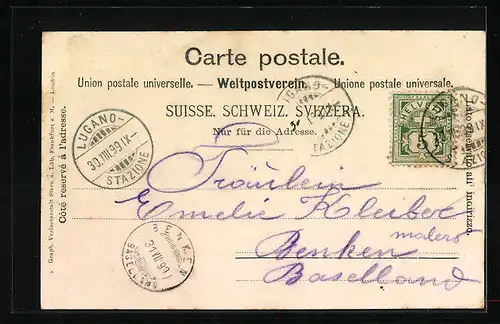 Carte postale.
Union postale universelle. — Weltpostverein. — Unione postale universale.
SUISSE. SCHWEIZ. SVIZZERA.
Nur für die Adresse.
Côté réservé à l'adresse.
Graph. Verlagsanstalt Stern & Löb, Frankfurt a. M. — London.
Lato riservato all' indirizzo.
LUGANO-
30.VIII.99.IX-
STAZIONE
LUGANO-
STAZIONE
HELVETIA
5
Fräulein
Emelie Kleiber
malers
Benken
Baselland
BENKEN
31.VIII.99